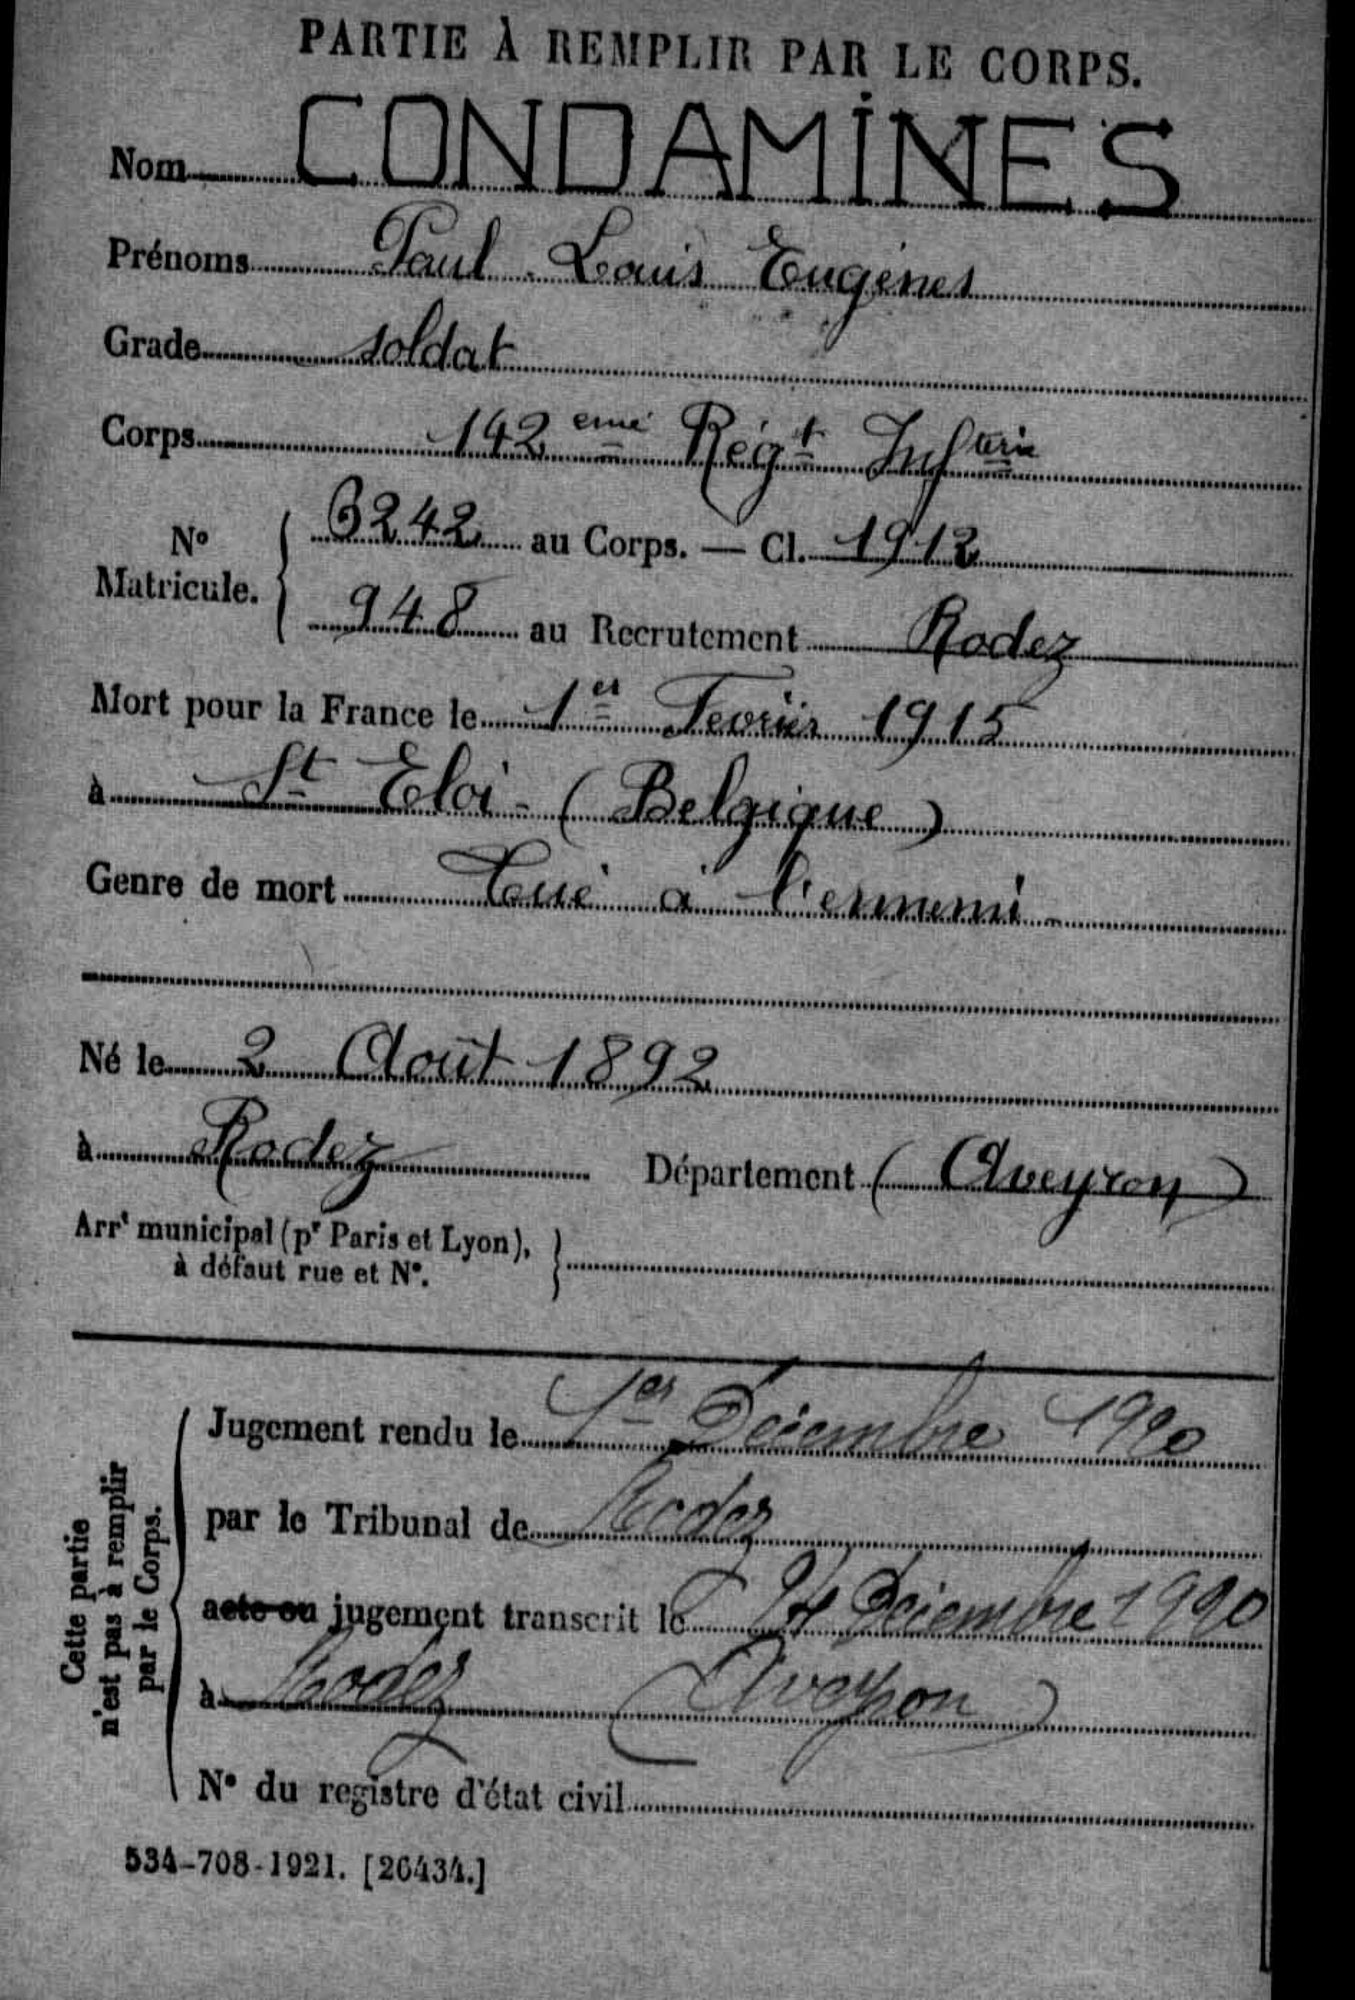 PARTIE À REMPLIR PAR LE CORPS.
Nom CONDAMINES
Prénoms Paul Louis Eugènes
Grade soldat
Corps 142 eme Régt Infterie
N° Matricule. 6242 au Corps. — Cl. 1912
948 au Recrutement Rodez
Mort pour la France le 1er Fevrier 1915
à St Eloi - (Belgique)
Genre de mort Tué à l'ennemi -
Né le 2 Août 1892
à Rodez Département (Aveyron)
Arrt municipal (pr Paris et Lyon),
à défaut rue et N°.
Cette partie
n'est pas à remplir
par le Corps.
Jugement rendu le 1er Décembre 1920
par le Tribunal de Rodez
acte ou jugement transcrit le 24 Décembre 1920
à Rodez (Aveyron)
N° du registre d'état civil
534-708-1921. [26434.]